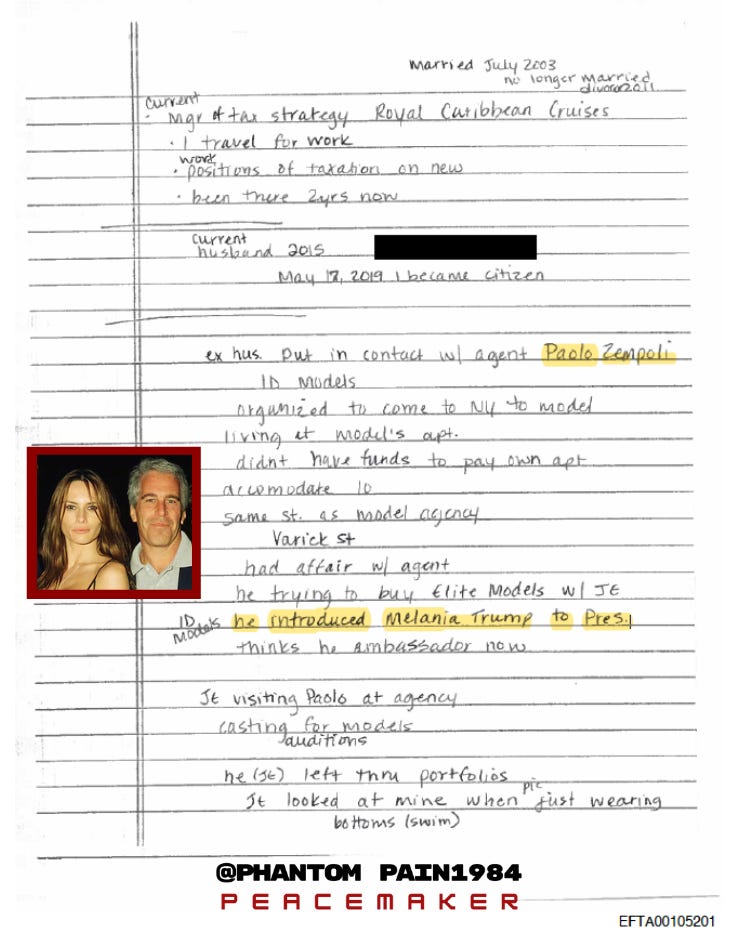 Married July 2003
no longer married
divorce 2011
current
· Mgr of tax strategy Royal Caribbean Cruises
· I travel for work
work
· positions of taxation on new
· been there 2yrs now
current
husband 2015
May 17, 2019 I became citizen
ex hus. put in contact w/ agent Paolo Zempoli
ID Models
organized to come to NY to model
living at model's apt.
didnt have funds to pay own apt
accomodate 10
same st. as model agency
Varick st
had affair w/ agent
he trying to buy Elite Models w/ JE
ID Models he introduced Melania Trump to Pres.
thinks he ambassador now
JE visiting Paolo at agency
casting for models
auditions
he (JE) left thru portfolios
pic
JE looked at mine when just wearing
bottoms (swim)
@PHANTOM PAIN1984
PEACEMAKER
EFTA00105201